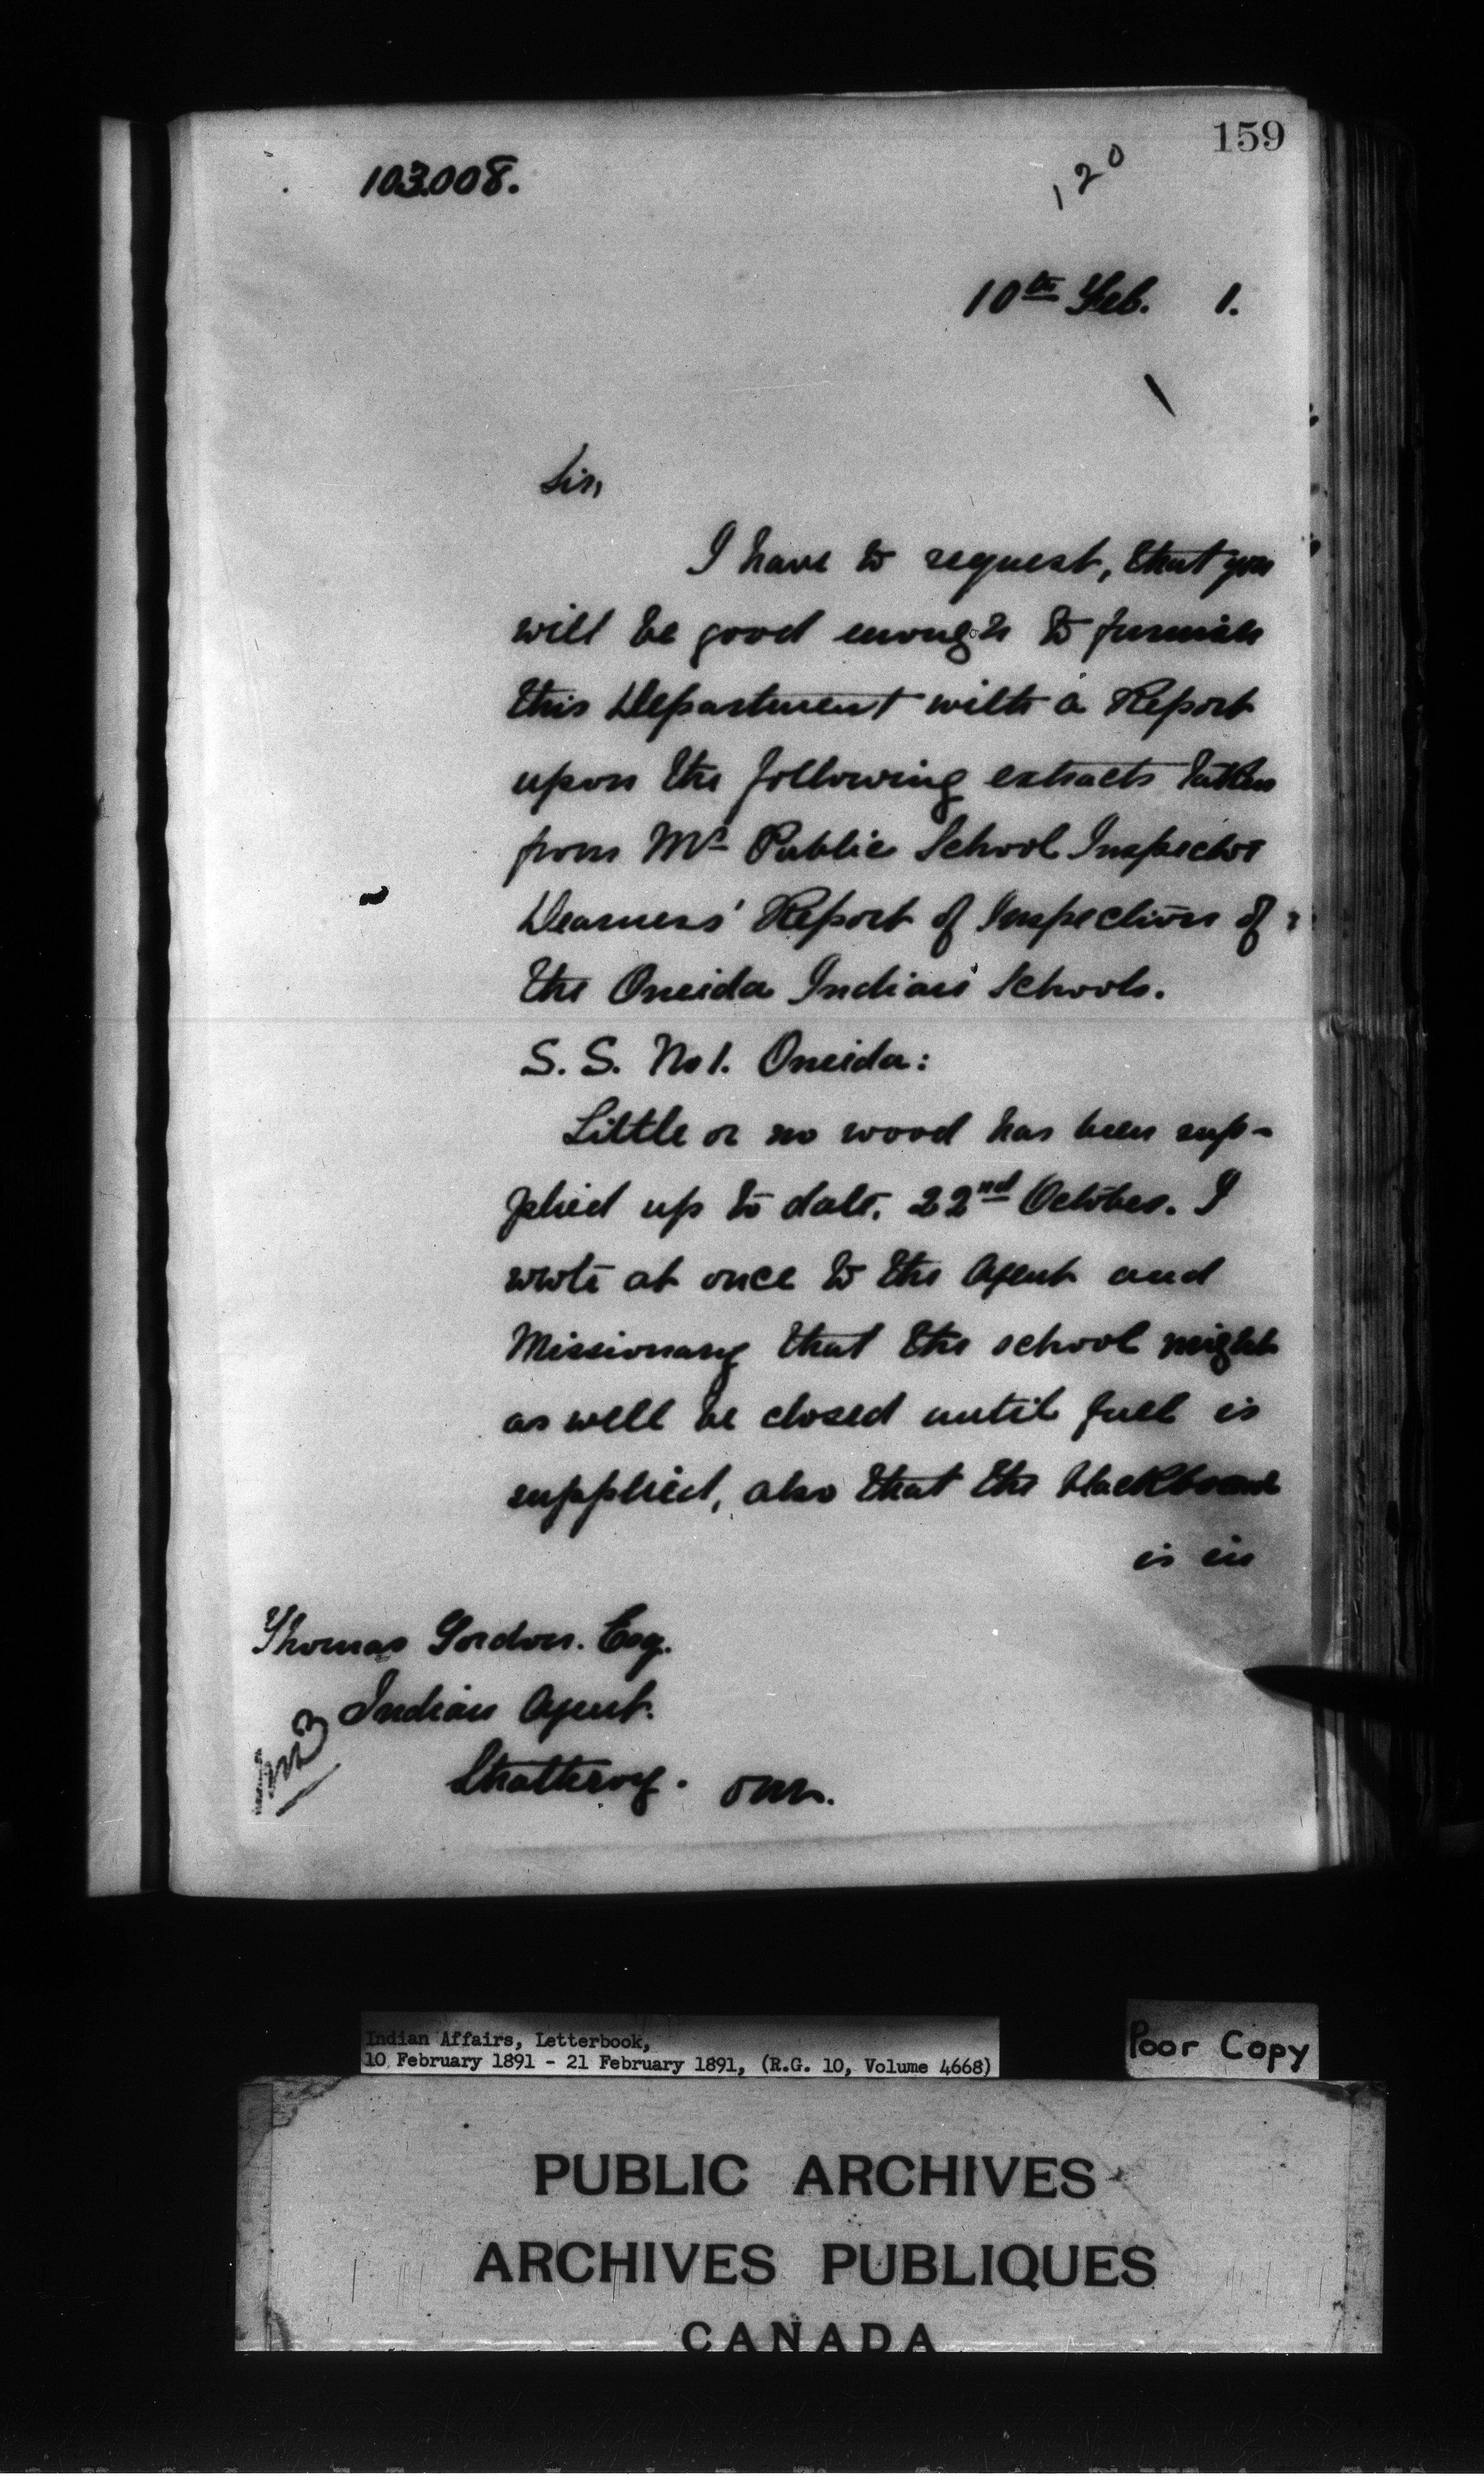 159
103.008.
120
10th Feb. 1.
Sir,
I have to request, that you
will be good enough to furnish
this Department with a Report
upon the following extracts taken
from Mr Public School Inspector
Dearness' Report of Inspection of
the Oneida Indian Schools.
S. S. No 1. Oneida:
Little or no wood has been sup-
plied up to date. 22nd October. I
wrote at once to the Agent and
Missionary that the school might
as well be closed until fuel is
supplied, also that the blackboard
is in
Thomas Gordon. Esq.
Indian Agent.
Strathroy. Ont.
Indian Affairs, Letterbook,
10 February 1891 - 21 February 1891, (R.G. 10, Volume 4668)
Poor Copy
PUBLIC ARCHIVES
ARCHIVES PUBLIQUES
CANADA